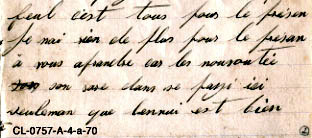 seul cest tous pour le présen
je nai rien de plus pour le présan
a vous aprandre car les nouvautée
son rare dans se payi ici
seuleman que lennui est bien
CL-0757-A-4-a-70